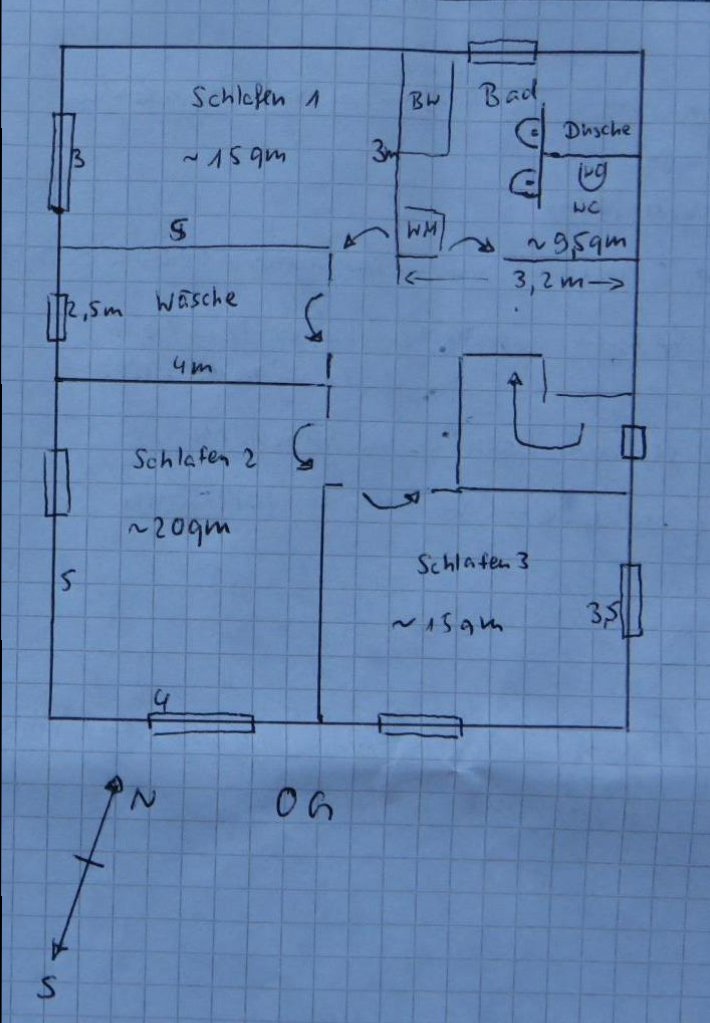 Schlafen 1
~15qm
3
5
BW
Bad
Dusche
3m
WC
WM
~9,5qm
3,2m
2,5m
Wäsche
4m
Schlafen 2
~20qm
5
4
Schlafen 3
~15qm
3,5
N
OG
S